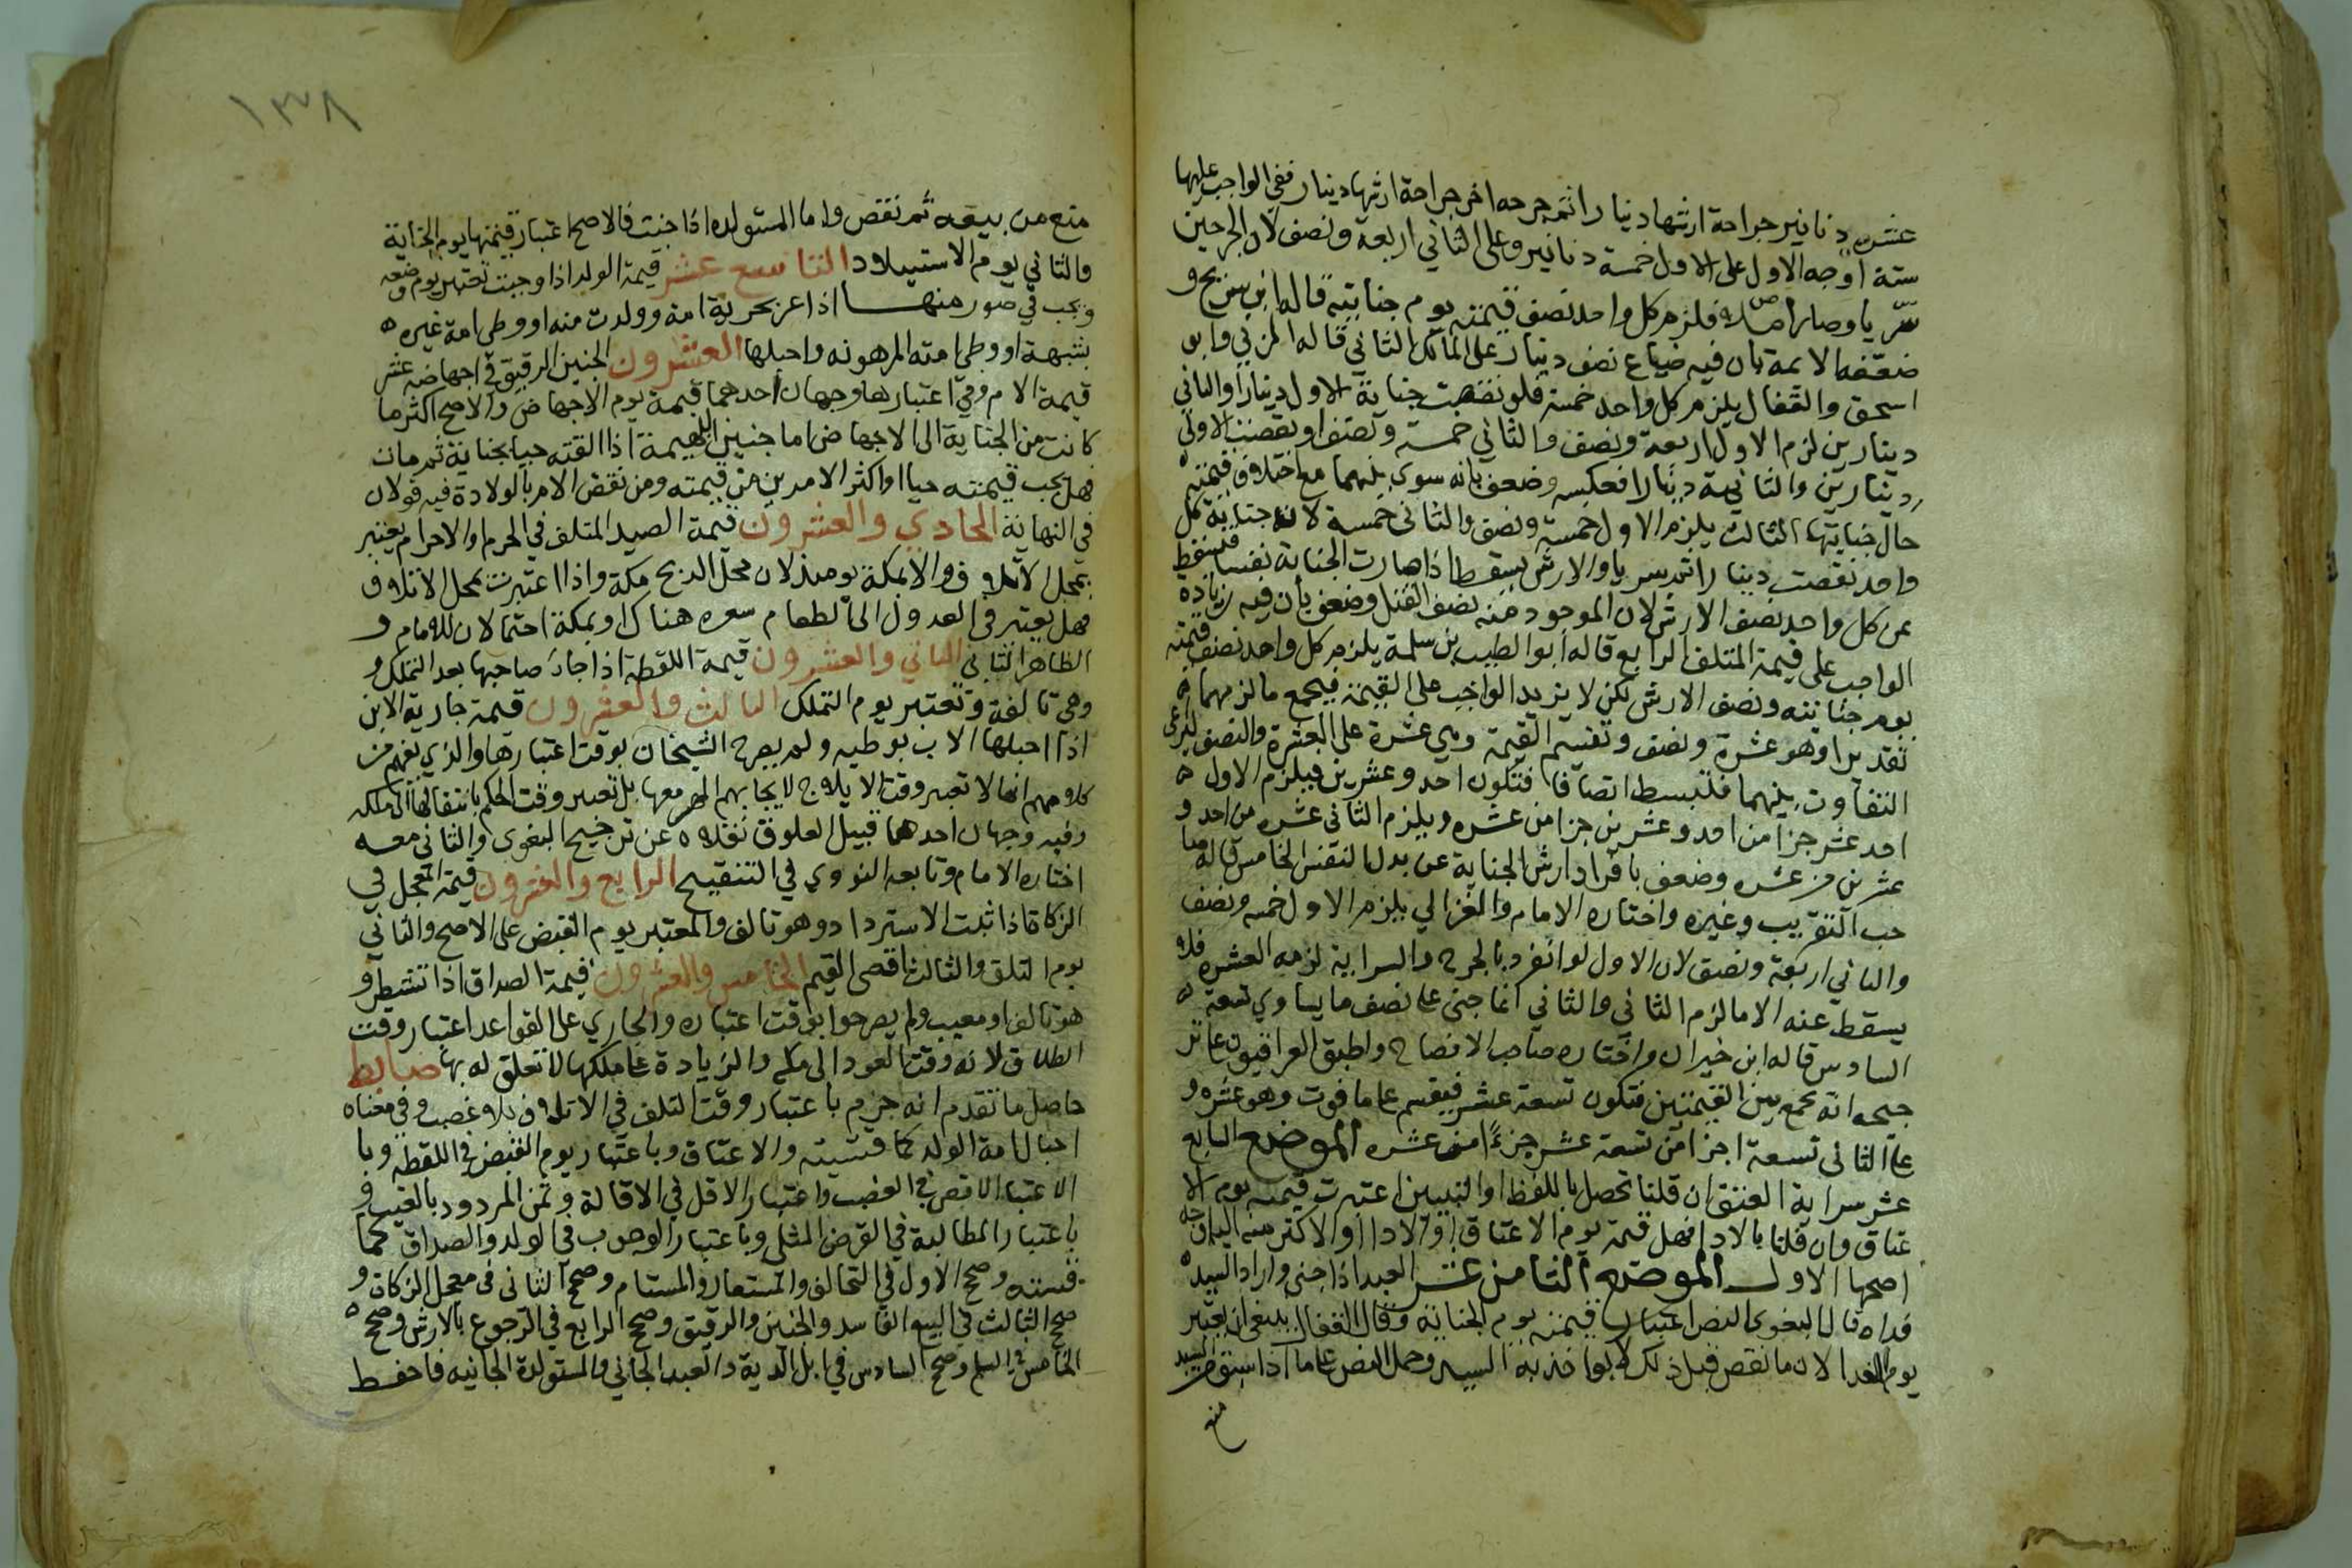 عشرة دنانير جراحة ارشها دينار اثم جرحه اخر جراحة ارشها دينار ففي الواجب عليها
ستة اوجه الاول على الاول خمسة دنانير وعلى الثاني اربعة ونصف لان الجرحين
سريا وصارا فلزم كل واحد نصف قيمته يوم جنايته قاله ابن سريج و
ضعفه الايمة بان فيه ضياع نصف دينار على المالك الثاني قاله المزني وابو
اسحق والقفال يلزم كل واحد خمسة فلو نقصت جناية الاول دينارا والثاني
دينارين لزم الاول اربعة ونصف والثاني خمسة ونصف او نقصت الاولى
دينارين والثانية دينارا فعكسه وضعف بانه سوى بينهما مع اختلاف قيمته
حال جنايتها الثالث يلزم الاول خمسة ونصف والثاني خمسة لان جناية كل
واحد نقصت دينارا ثم سريا والارش يسقط اذا صارت الجناية نفسا فيسقط
عن كل واحد نصف الارش لان الموجود منه نصف القتل وضعف بان فيه زيادة
الواجب على قيمة المتلف الرابع قاله ابو الطيب بن سلمة يلزم كل واحد نصف قيمته
يوم جنايته ونصف الارش لكن لا يزيد الواجب على القيمة فيجمع ما لزمهما
تقديرا وهو عشرة ونصف وتقسيم القيمة وهي عشرة على العشرة والنصف ليراعى
التفاوت بينهما فتبسط انصافا فتكون احد وعشرين فيلزم الاول
احد عشر جزا من احد وعشرين جزا من عشره ويلزم الثاني عشره من احد و
عشرين من عشره وضعف بافراد ارش الجناية عن بدل النفس الخامس قاله صا
حب التقريب وغيره واختاره الامام والغزالي يلزم الاول خمسه ونصف
والثاني اربعة ونصف لان الاول لو انفرد بالجرح والسراية لزمه العشره فلا
يسقط عنه الا ما لزم الثاني والثاني انما جنى على نصف ما يساوي تسعة
السادس قاله ابن خيران واختاره صاحب الافصاح واطبق العراقيون على تر
جيحه انه يجمع بين القيمتين فتكون تسعة عشر فيقسم على ما فوت وهو عشره و
على الثاني تسعة اجزا من تسعة عشر جزءا من عشره الموضع السابع
عشر سراية العتق ان قلنا تحصل باللفظ او التبيين اعتبرت قيمته يوم الا
عتاق وان قلنا بالادا فهل قيمة يوم الاعتاق او الادا او الاكثر منه اليه اوجه
اصحها الاول الموضع الثامن عشر العبد اذا جنى واراد السيد
فداه قال البغوي النص اعتبار قيمته يوم الجناية وقال القفال ينبغي ان يعتبر
يوم الفدا لان ما نقص قبل ذلك لا يواخذ به السيد وحمل النص على ما اذا سبق من السيد
منع
١٣٨
منع من بيعه ثم نقص واما المستولده اذا جنت فالاصح اعتبار قيمتها يوم الجناية
والثاني يوم الاستيلاد التاسع عشر قيمة الولد اذا وجبت تعتبر يوم وضعه
ويجب في صور منها اذا غر بحرية امة وولدت منه او وطي امة غيره
بشبهة او وطي امته المرهونه واحبلها العشرون الجنين الرقيق في اجهاضه عشر
قيمة الام وفي اعتبارها وجهان احدهما قيمة يوم الاجهاض والاصح اكثر ما
كانت من الجناية الى الاجهاض اما جنين البهيمة اذا القته حيا بجناية ثم مات
فهل يجب قيمته حيا او اكثر الامرين من قيمته ومن نقص الام بالولادة فيه قولان
في النهاية الحادي والعشرون قيمة الصيد المتلف في الحرم والاحرام يعتبر
بمحل الاتلاف والا بمكة يوميذ لان محل الذبح مكة واذا اعتبرت بمحل الاتلاف
فهل يعتبر في العدول الى الطعام سعره هناك او بمكة احتمالان للامام و
الظاهر الثاني الثاني والعشرون قيمة اللقطة اذا جاء صاحبها بعد التملك و
وهي تالفة وتعتبر يوم التملك الثالث والعشرون قيمة جارية الابن
اذا احبلها الاب بوطيه ولم يصرح الشيخان بوقت اعتبارها والذي يفهم من
كلامهم انها لا تعتبر وقت الايلاج لايجابهم المهر معها بل تعتبر وقت الحكم بانتقالها الى ملكه
وفيه وجهان احدهما قبيل العلوق نقلاه عن ترجيح البغوي والثاني معه
اختاره الامام وتابعه النووي في التنقيح الرابع والعشرون قيمة المعجل في
الزكاة اذا ثبت الاسترداد وهو تالف والمعتبر يوم القبض على الاصح والثاني
يوم التلف والثالث اقصى القيم الخامس والعشرون قيمة الصداق اذا تشطر و
هو تالف او معيب ولم يصرحوا بوقت اعتباره والجاري على القواعد اعتبار وقت
الطلاق لانه وقت العود الى ملكه والزيادة على ملكها لا تعلق له بها ضابط
حاصل ما تقدم انه جزم باعتبار وقت التلف في الاتلاف بلا غصب وفي معناه
احبال امة الولد كما قسته والاعتاق وباعتبار يوم القبض في اللقطه وبا
لاعتبار الاقصى في الغصب واعتبار الاقل في الاقالة وثمن المردود بالعيب و
باعتبار المطالبة في القرض المثلي وباعتبار الوجوب في الولد والصداق كما
قسته وصحح الاول في التحالف والمستعار والمستام وصحح الثاني في معجل الزكاة و
صحح الثالث في البيع الفاسد والجنين والرقيق وصحح الرابع في الرجوع بالارش وصحح
الخامس في السلم وصحح السادس في ابل الدية والعبد الجاني والمستولدة الجانيه فاحفظ